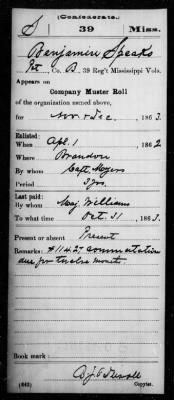 (Confederate.)
S | 39 | Miss.
Benjamin Speaks
Pvt, Co. B, 39 Reg't Mississippi Vols.
Appears on
Company Muster Roll
of the organization named above,
for Nov & Dec, 1863.
Enlisted:
When Apl. 1, 1862
Where Brandon
By whom Capt. Moyers
Period 3 yrs.
Last paid:
By whom Maj. Williams
To what time Oct. 31, 1863.
Present or absent Present
Remarks: $114.27 commutation
due for twelve months.
Book mark:
(642) Copyist.